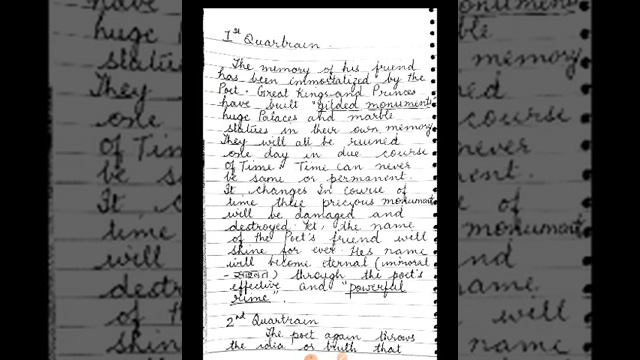 1st Quartrain.
The memory of his friend
has been immortalized by the
Poet. Great Kings and Princes
have built "gilded monuments
huge Palaces and marble
statues in their own memory
They will all be ruined
one day in due course
of Time. Time can never
be same or permanent.
It changes in course of
time these precious monuments
will be damaged and
destroyed. the name
of the Poet's friend will
shine for ever. His name
will become eternal (immoral
-शाश्वत) through the poet's
effective and "powerful
rime".
2nd Quartrain
The poet again throws
the idia or truth that